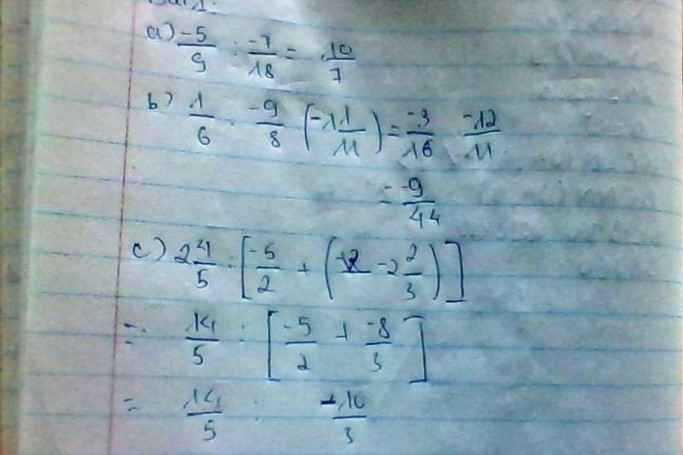 a) -5/9 : -7/18 = 10/7
b) 1/6 · -9/8 (-1 1/11) = -3/16 · -12/11
= -9/44
c) 2 4/5 : [-5/2 + (-2 2/3)]
= 14/5 : [-5/2 + -8/3]
= 14/5 : -10/3